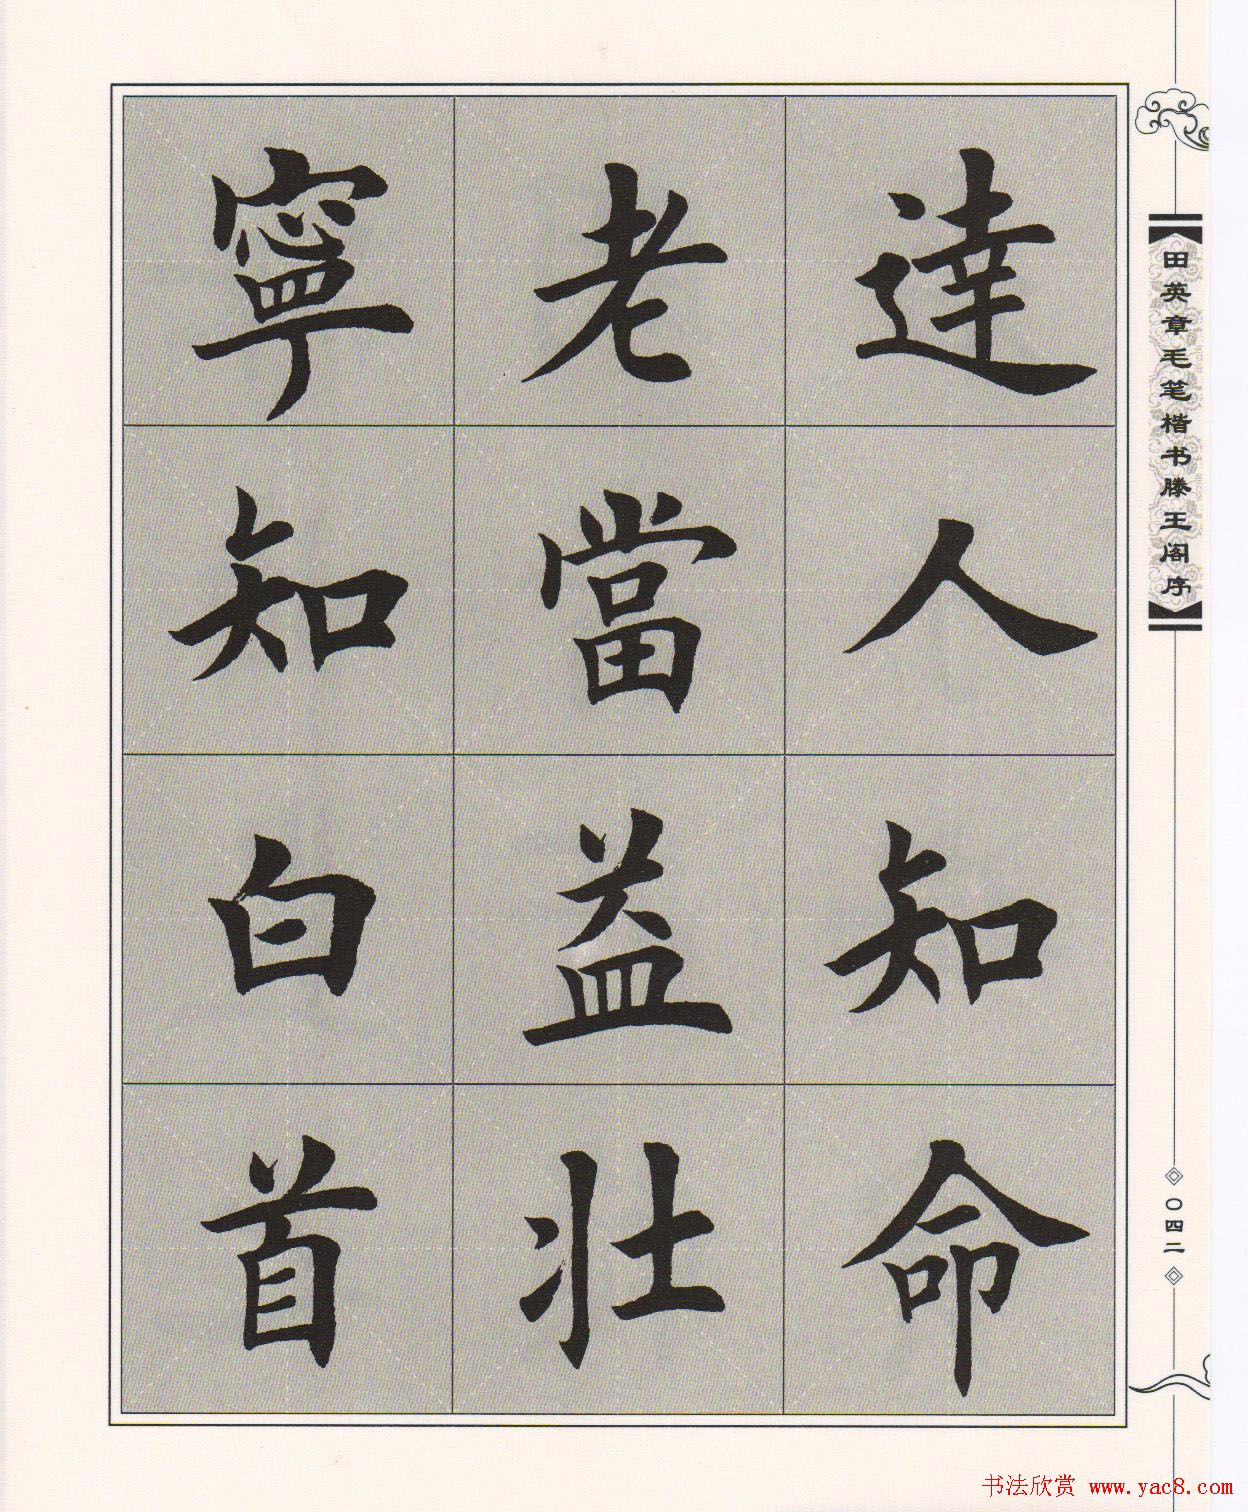 達人知命
老當益壯
寧知白首
田英章毛笔楷书滕王阁序
〇四二
书法欣赏 www.yac8.com